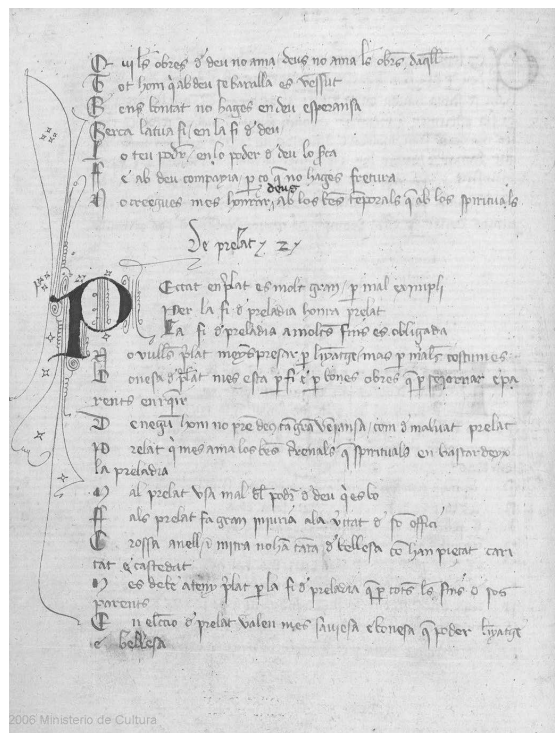 Qui les obres de deu no ama deus no ama les obres daquell
Tot hom qi ab deu se baralla es vensut
Sens bontat no hages en deu esperansa
Serca la tua fi en la fi de deu
Lo teu poder en lo poder de deu lo serca
Fe ab deu companyia per ço que no hages fretura
No creegues mes honrar deus ab los bens temporals que ab los spirituals
De prelat 2
Peccat en prelat es molt gran per mal eximpli
Per la fi de preladia honra prelat
La fi de preladia a molts fins es obligada
No vulles prelat meyspresar per linatge mas per males costumes
Bonesa de prelat mes esta per fi e per bones obres que per sojornar e pa
rents enriqir
De negun hom no pren deu tan gran veniansa com de malvat prelat
Prelat qi mes ama los bens terrenals que spirituals en bastardeya
la preladia
Mal prelat usa mal del poder de deu qi es lo
Fals prelat fa gran injuria a la veritat de son offici
Crossa anell e mitra no han tanta de bellesa com han pietat cari
tat e castedat
Mes deu atenyer prelat per la fi de preladia que per tots les fins de sos
parents
En eleccio de prelat valen mes saviesa e bonesa que poder linyatge
e bellesa
2006 Ministerio de Cultura